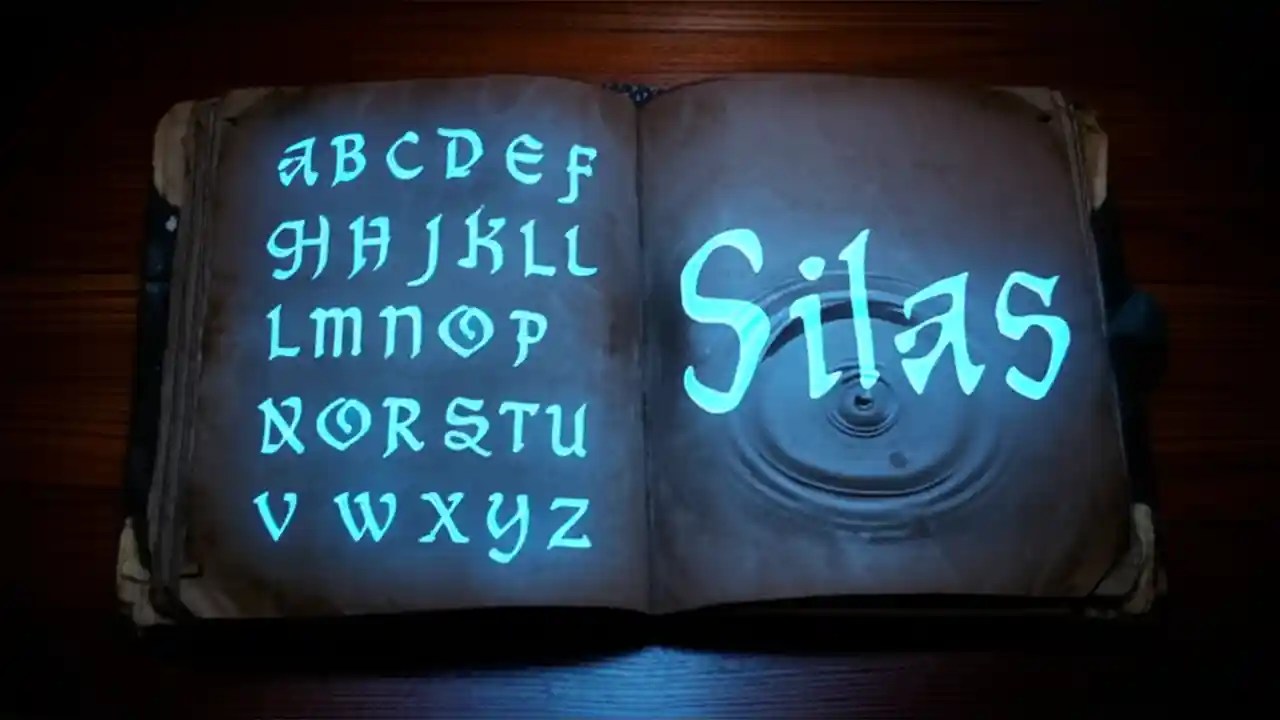 ABCDEF
GHHJKLL
LMNOP
NORSTU
VWXYZ
Silas